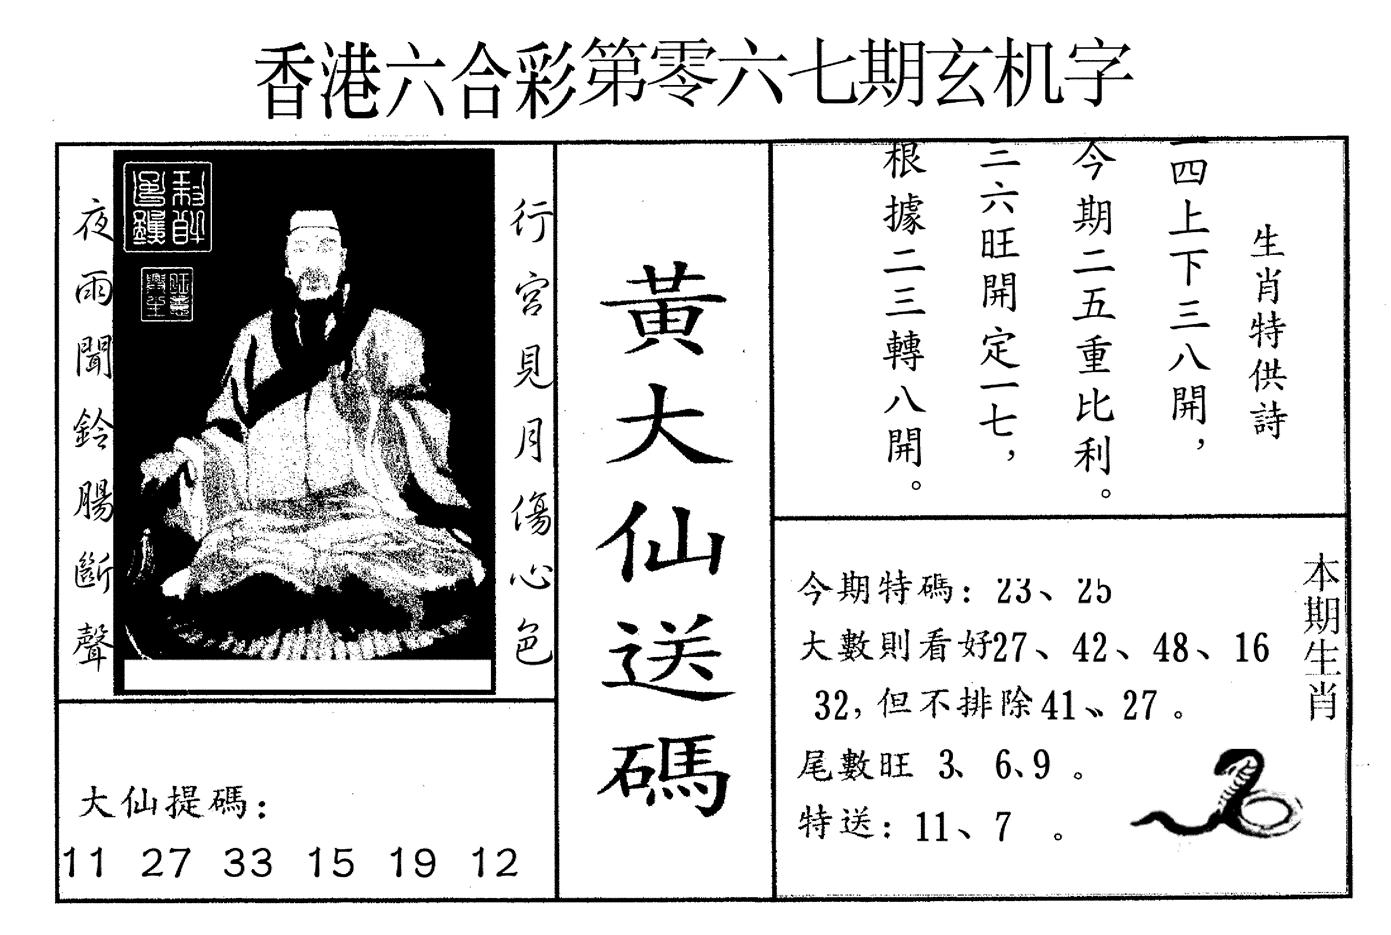 香港六合彩第零六七期玄机字
行宮見月傷心色
夜雨聞鈴腸斷聲
大仙提碼：
11 27 33 15 19 12
黃大仙送碼
生肖特供詩
四上下三八開，
今期二五重比利。
三六旺開定一七，
根據二三轉八開。
本期生肖
今期特碼：23、25
大數則看好27、42、48、16
32，但不排除41、27。
尾數旺 3、6、9。
特送：11、7 。